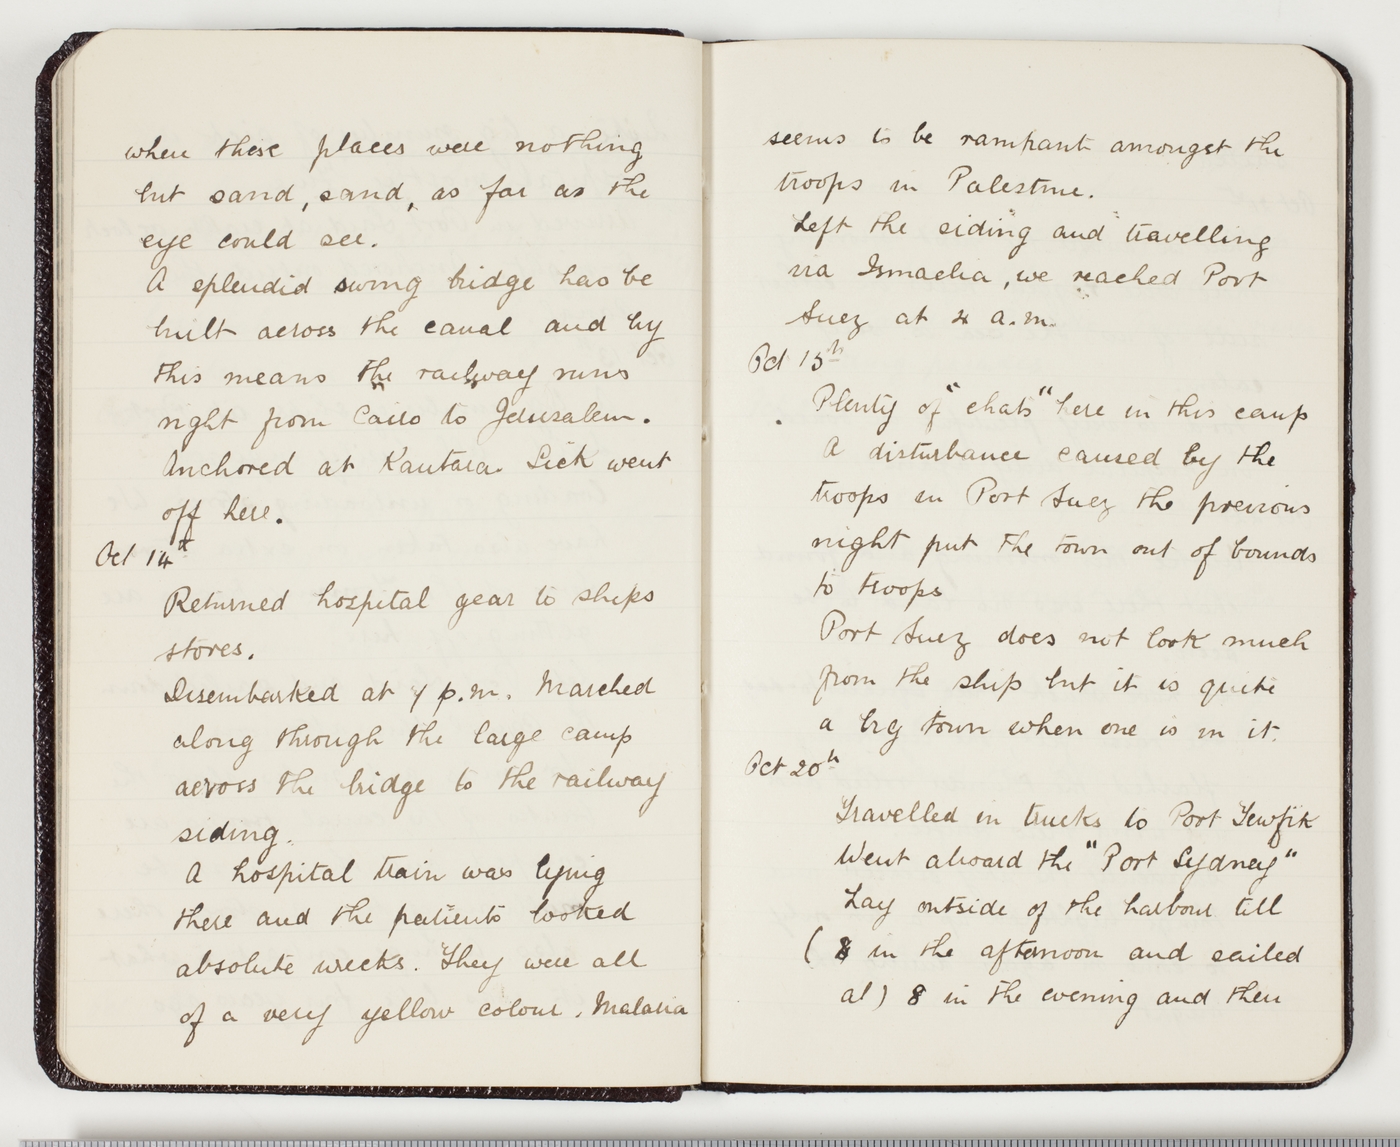 when these places were nothing
but sand, sand, as far as the
eye could see.
A splendid swing bridge has be
built across the canal and by
this means the railway runs
right from Cairo to Jerusalem.
Anchored at Kantara. Sick went
off here.
Oct 14th
Returned hospital gear to ships
stores.
Disembarked at 7 p.m. Marched
along through the large camp
across the bridge to the railway
siding.
A hospital train was lying
there and the patients looked
absolute wrecks. They were all
of a very yellow colour. Malaria
seems to be rampant amongst the
troops in Palestine.
Left the siding and travelling
via Ismaelia, we reached Port
Suez at 4 a.m.
Oct 15th
Plenty of "chats" here in this camp
A disturbance caused by the
troops in Port Suez the previous
night put the town out of bounds
to troops
Port Suez does not look much
from the ship but it is quite
a big town when one is in it.
Oct 20th
Travelled in trucks to Port Tewfik
Went aboard the "Port Sydney"
Lay outside of the harbour till
( 8 in the afternoon and sailed
at) 8 in the evening and then